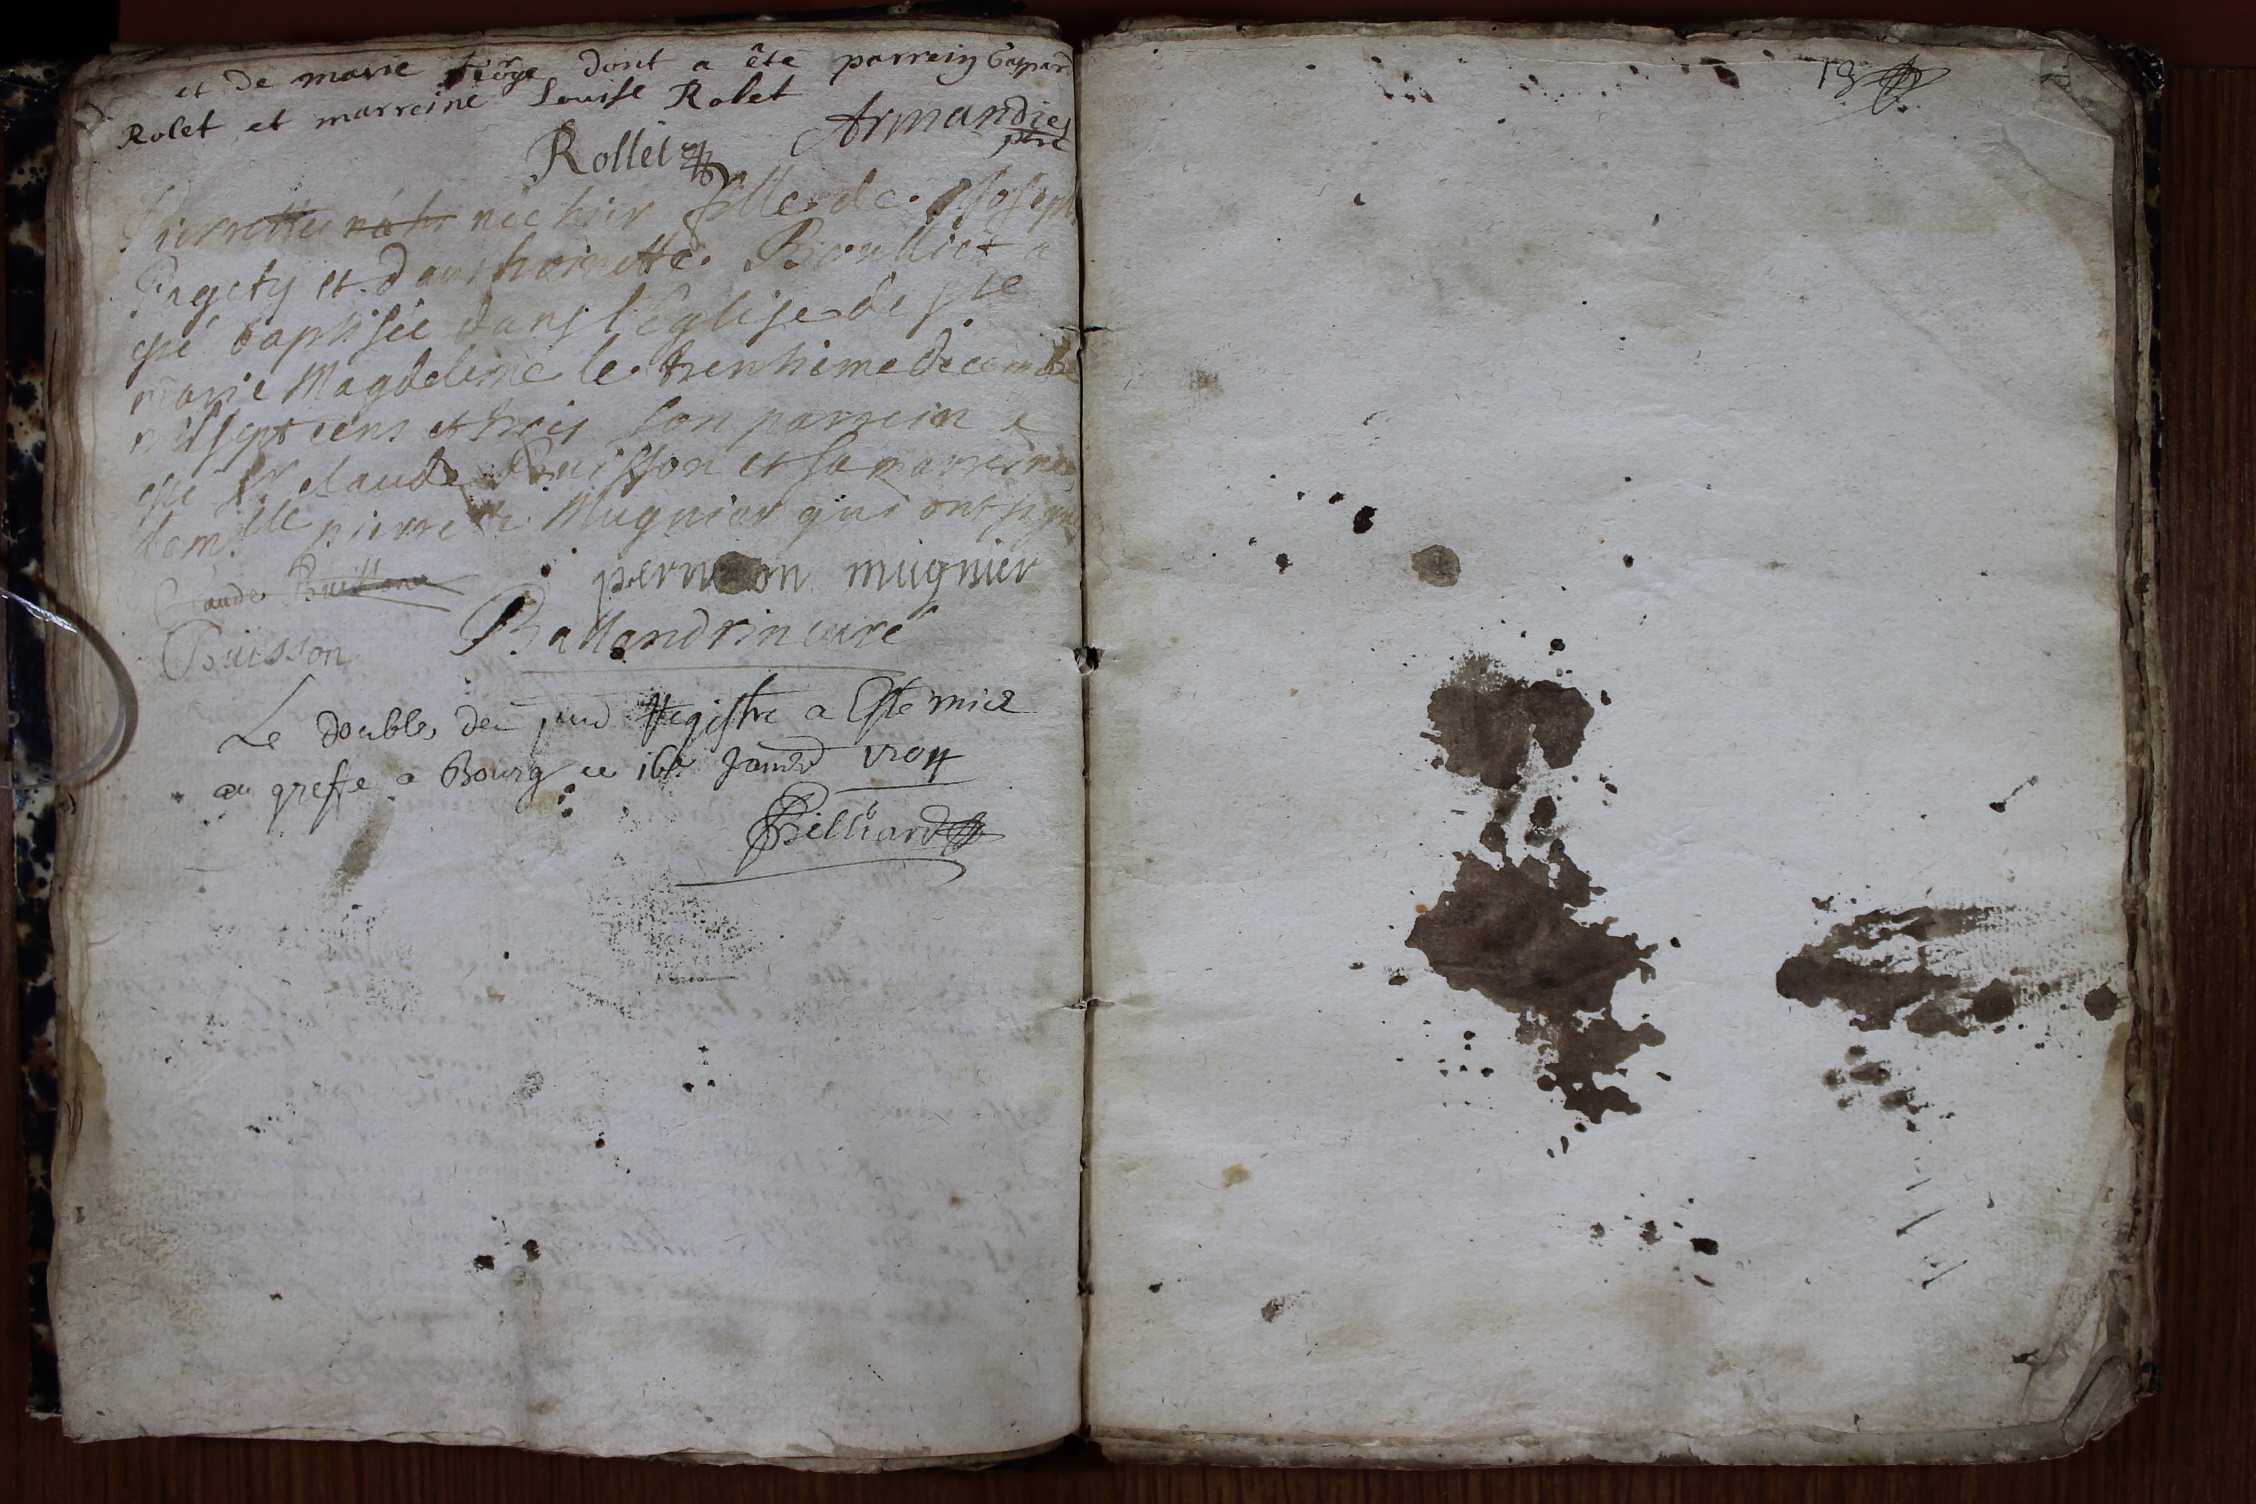 et de marie dont a êté parrein Gaspard
Rolet et marreine Louise Rolet
Armandies
ptre
Rollet
Pierrette née hier fille de Joseph
et danthoinette Boulliet a
esté baptisée dans l'Eglise de Ste
marie Magdeleine le trentieme decembre
mil sept cens et trois son parrein a
esté Sr claude Buisson et sa marreine
damlle pierrette Mugnier qui ont signé
perneton mugnier
Claude
Buisson
Ballandrin curé
Le double du pnt Registre a Esté mis
au greffe a Bourg ce 16e Janer 1704
Billiard
13